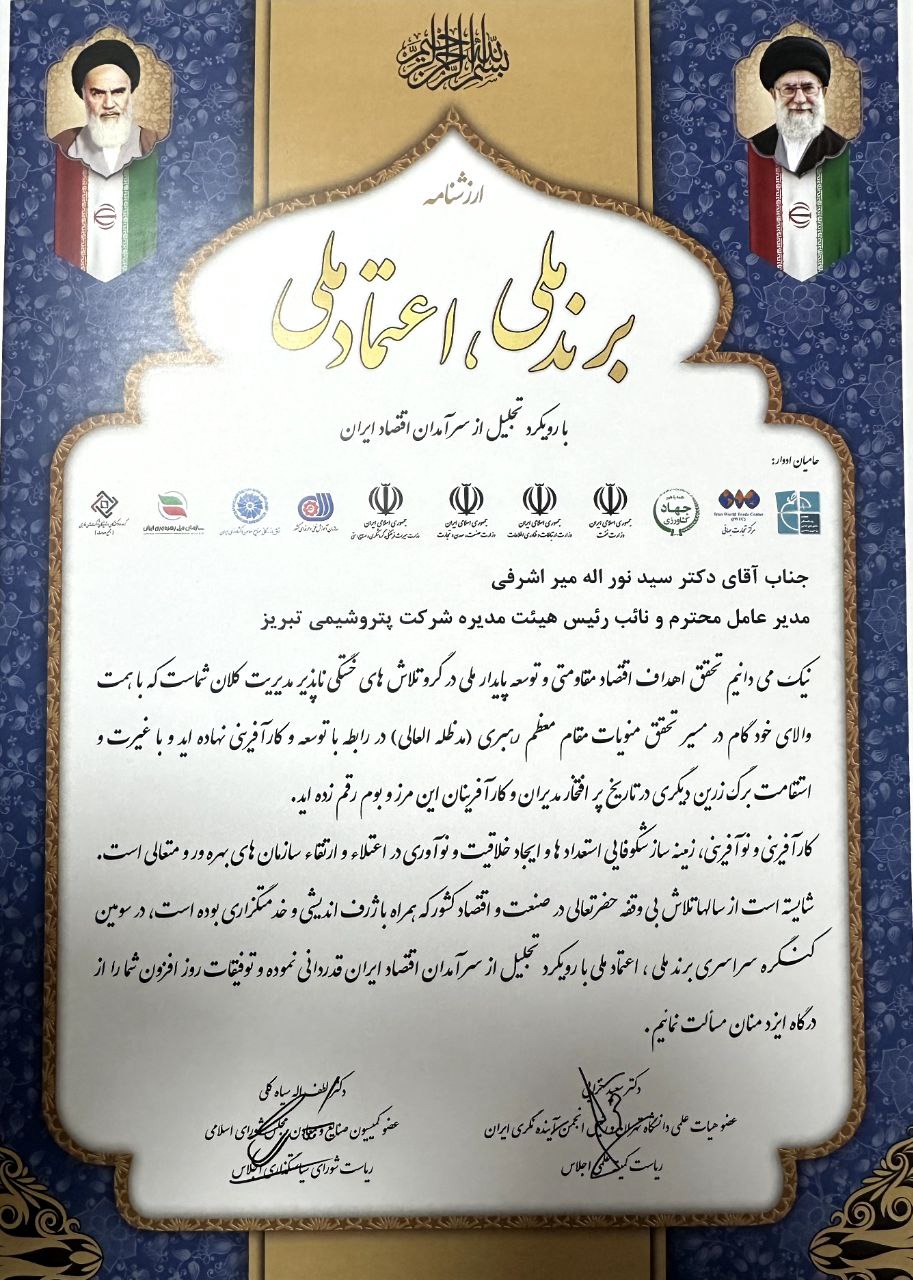 بسم الله الرحمن الرحیم
ارزشنامه
برند ملی ، اعتماد ملی
با رویکرد تجلیل از سرآمدان اقتصاد ایران
حامیان ادوار:
جهاد کشاورزی
Iran World Trade Center
(IWTC)
مرکز تجارت جهانی
جمهوری اسلامی ایران
وزارت نفت
جمهوری اسلامی ایران
وزارت ارتباطات و فناوری اطلاعات
جمهوری اسلامی ایران
وزارت صنعت، معدن و تجارت
جمهوری اسلامی ایران
وزارت میراث فرهنگی، گردشگری و صنایع دستی
جناب آقای دکتر سید نور اله میر اشرفی
مدیر عامل محترم و نائب رئیس هیئت مدیره شرکت پتروشیمی تبریز
نیک می دانیم تحقق اهداف اقتصاد مقاومتی و توسعه پایدار ملی در گرو تلاش های خستگی ناپذیر مدیریت کلان شماست که با همت
والای خود گام در مسیر تحقق منویات مقام معظم رهبری (مدظله العالی) در رابطه با توسعه و کارآفرینی نهاده اید و با غیرت و
استقامت برگ زرین دیگری در تاریخ پر افتخار مدیران و کارآفرینان این مرز و بوم رقم زده اید.
کارآفرینی و نوآفرینی، زمینه ساز شکوفایی استعداد ها و ایجاد خلاقیت و نوآوری در اعتلاء و ارتقاء سازمان های بهره ور و متعالی است.
شایسته است از سالها تلاش بی وقفه حضرتعالی در صنعت و اقتصاد کشور که همراه با ژرف اندیشی و خدمتگزاری بوده است، در سومین
کنگره سراسری برند ملی ، اعتماد ملی با رویکرد تجلیل از سرآمدان اقتصاد ایران قدردانی نموده و توفیقات روز افزون شما را از
درگاه ایزد منان مسألت نمائیم.
دکتر سعید
عضو هیات علمی دانشگاه تهران و انجمن آینده نگری ایران
ریاست کمیته علمی اجلاس
دکتر لطف اله سیاه کلی
عضو کمیسیون صنایع و معادن مجلس شورای اسلامی
ریاست شورای سیاستگذاری اجلاس